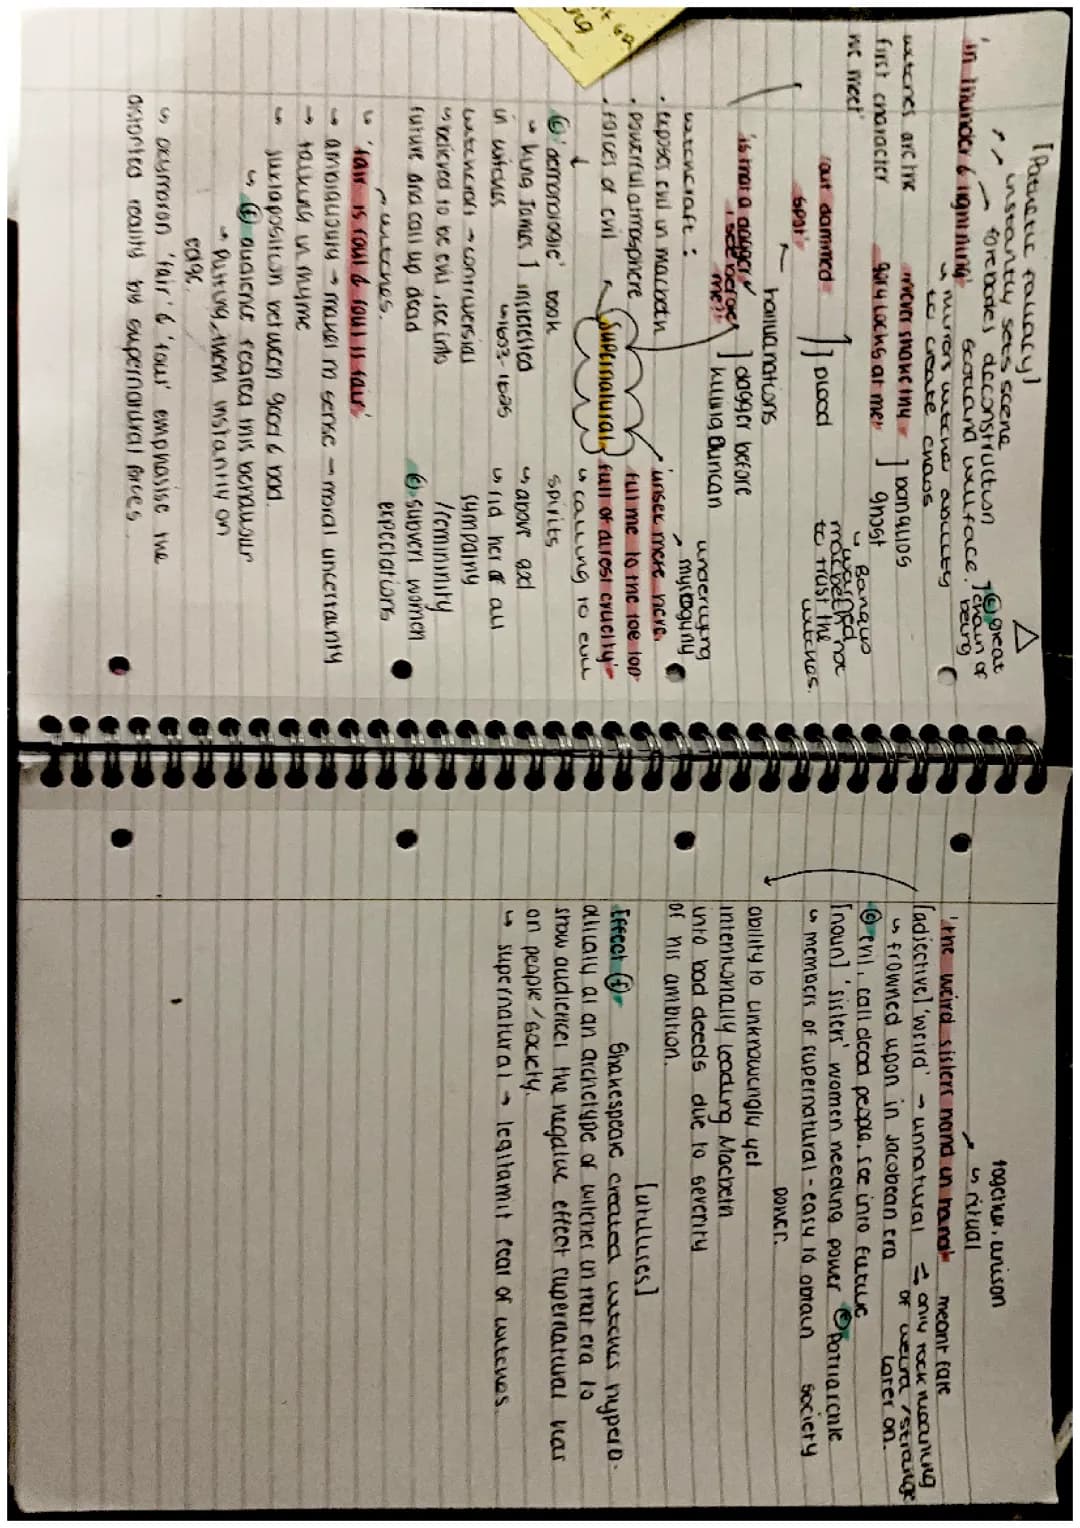 [Pathetic fallacy]
↳ instantly sets scene
↳ forebodes deconstruction
Scotland will face.
] Ⓒ great
chain of
being
'in thunder & lightning'
↳ mirrors witches ability
to create chaos
witches are the
first character
we meet'
'never shake thy
gory locks at me'
] banquos
ghost
↳ Banquo
warned
macbeth not
to trust the
witches.
'out dammed
spot'
] blood
hallucinations
'is that a dagger
I see before
me?'
] dagger before
killing Duncan
underlying
mysogyny
witchcraft :
• exposes evil in macbeth
• powerful atmosphere
• forces of evil
Supernatural
'unsex mere here,
fill me to the toe top
full of direst cruelty'
↳ calling to evil
spirits
↳ above god
↳ rid her of all
sympathy
/femininity
Ⓒ subvert women
expectations
Ⓒ 'demonologie' book
→ King James I interested
in witches ↳ 1603-1625
witchcraft → contruversial
↳ believed to be evil, see into
future and call up dead
witches.
↳ 'fair is foul & foul is fair'
→ ambiguously → makes no sense → moral uncertainty
→ talking in rhyme
↳ juxtaposition between good & bad.
↳ Ⓔ audience feared this behaviour
→ Putting them instantly on
edge.
↳ oxymoron 'fair' & 'foul' emphasise the
distorted reality by supernatural forces.
together, unison
↳ ritual
'the weird sisters hand in hand'
meant fate
[adjective] 'weird' → unnatural
→ only took meaning
of weird / strange
later on.
↳ frowned upon in Jacobean era
Ⓒ evil, call dead people, see into future
[noun] 'sisters' women needing power Ⓒ Patriarchle
society
↳ members of supernatural - easy to obtain
power.
ability to unknowingly yet
intentionally leading Macbeth
into bad deeds due to severity
of his ambition.
Effect Ⓔ Shakespeare created witches hyperb-
olically as an archetype of witches in that era to
show audiences the negative effect supernatural has
on people / society.
↳ supernatural → legitamit fear of witches.